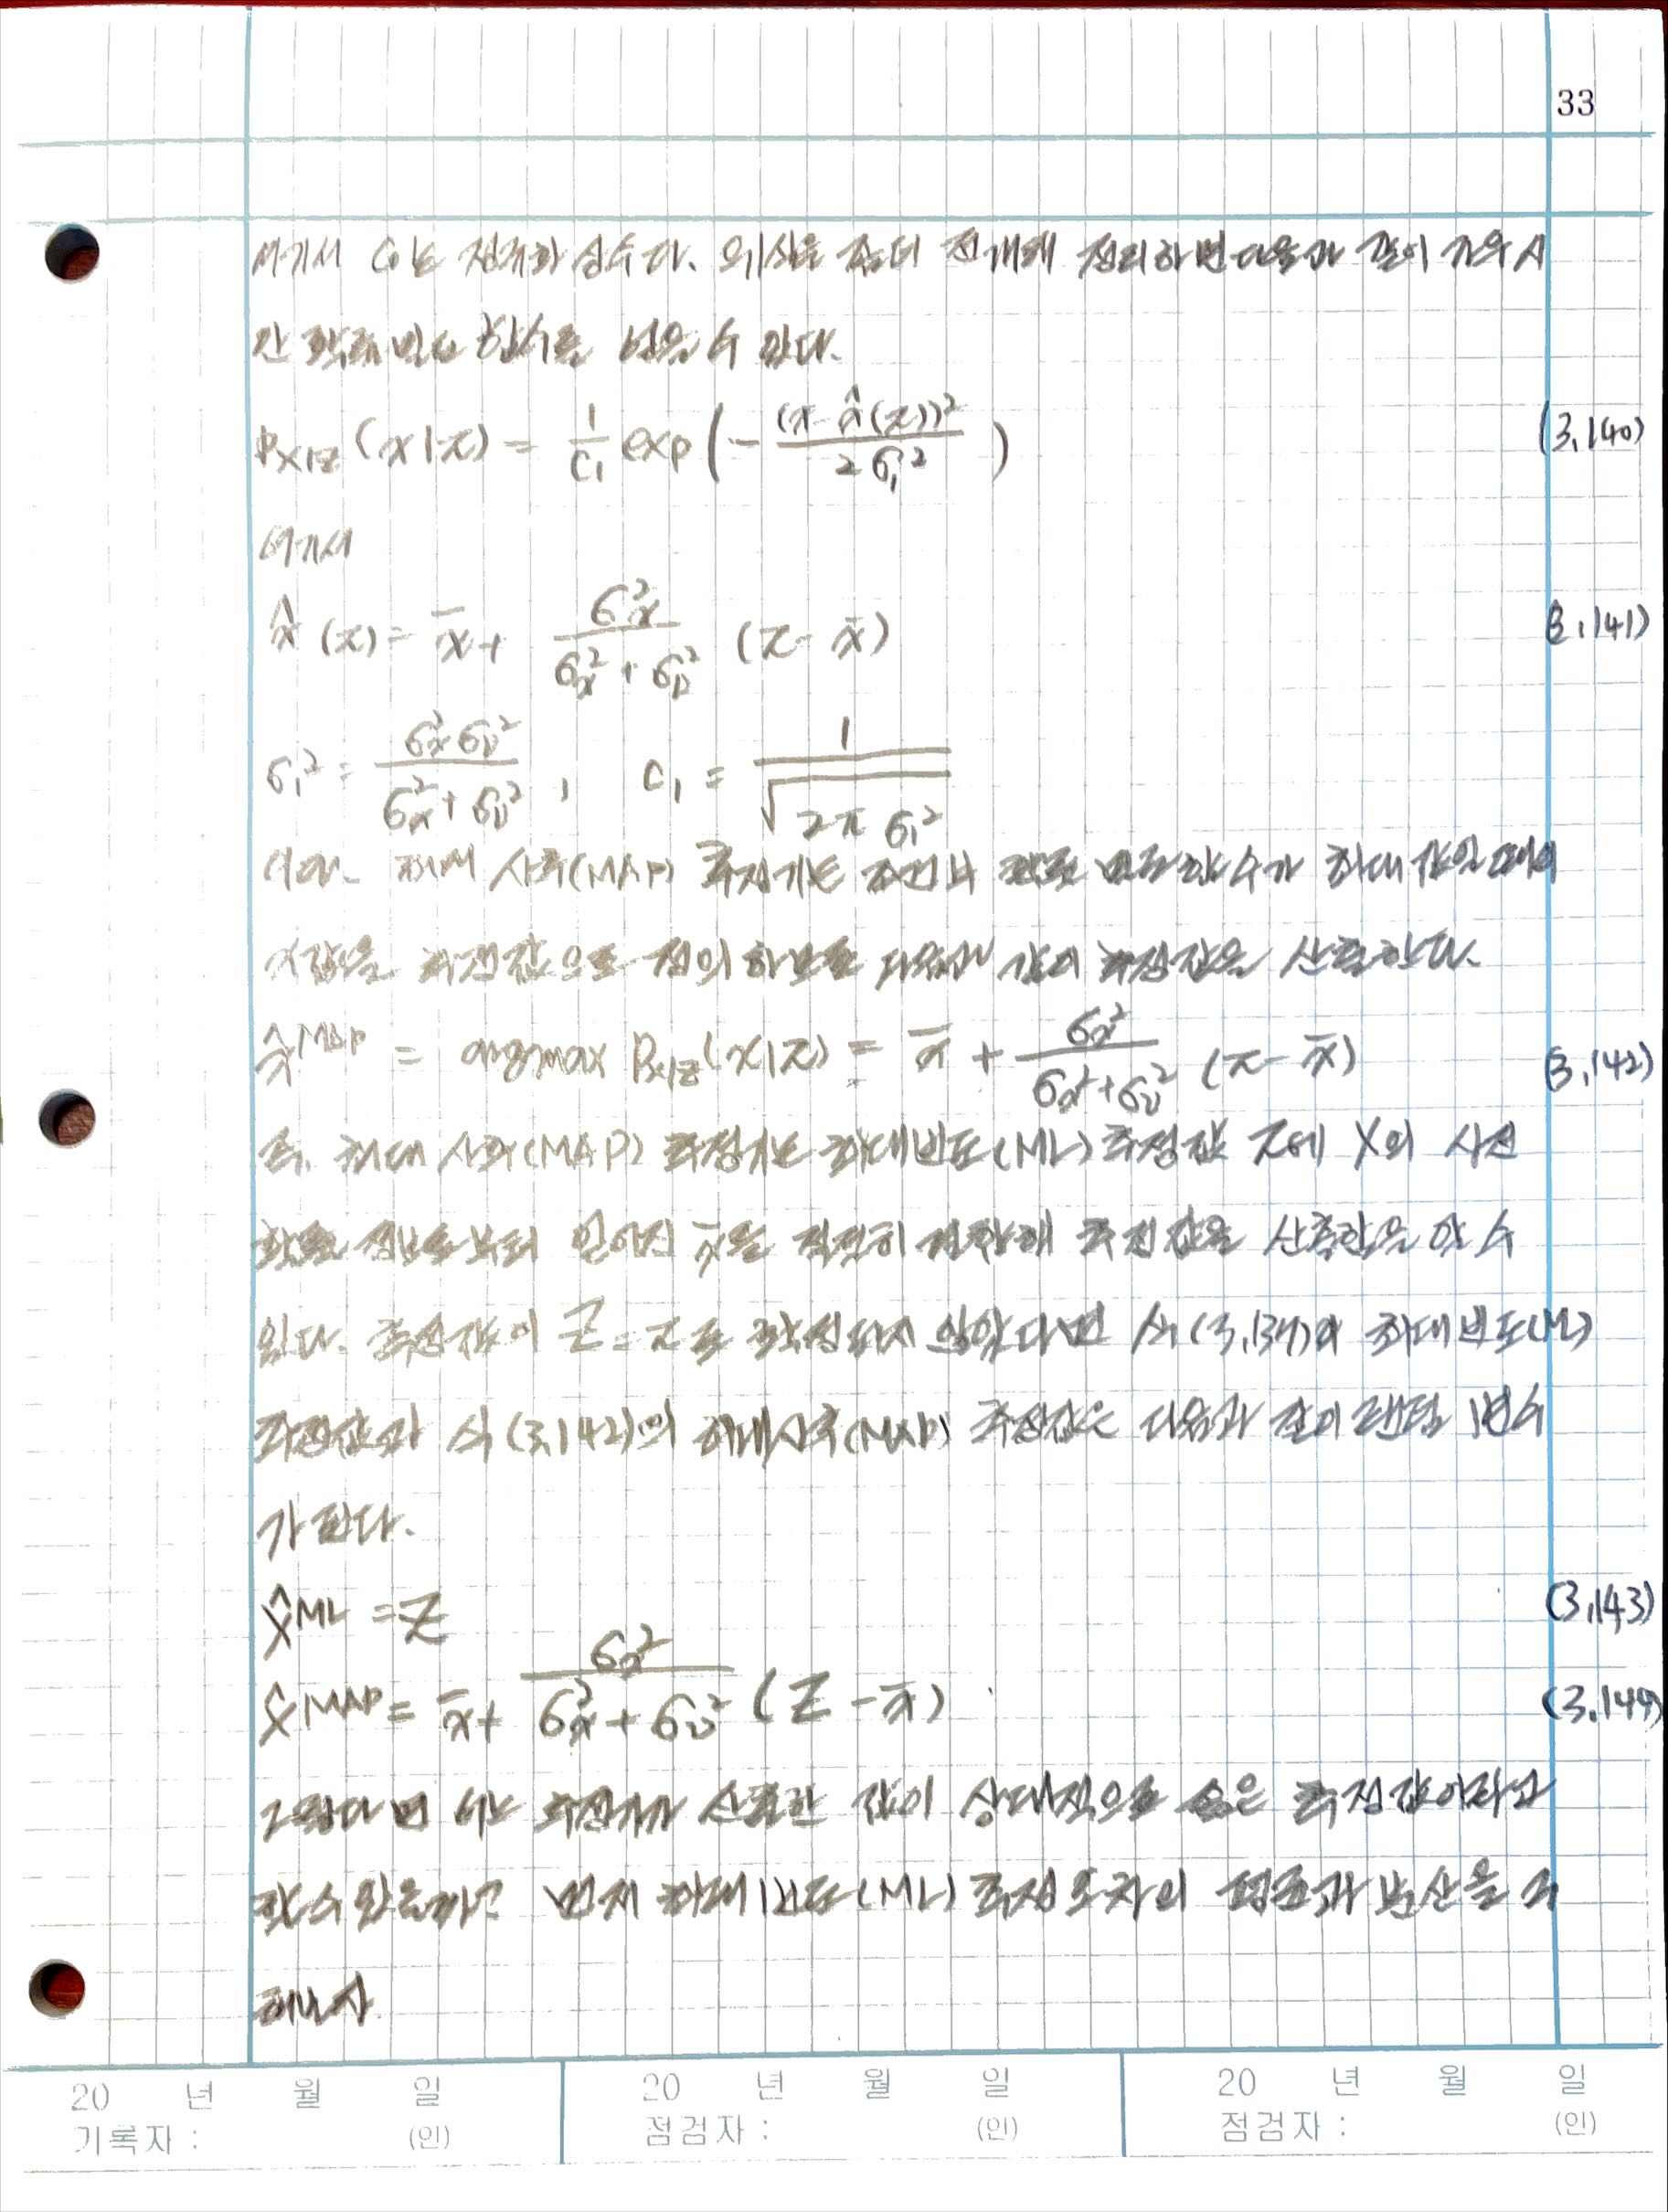 33
여기서 C0는 상수다. 위 식을 좀 더 전개해 정리하면 다음과 같이 가우시
안 확률 밀도 함수를 얻을 수 있다.
p_{X|Z}(x|z) = \frac{1}{c_1} exp(-\frac{(x-\hat{x}(z))^2}{2σ_1^2}) (3.140)
여기서
\hat{x}(z) = \bar{x} + \frac{σ_x^2}{σ_x^2+σ_v^2} (z-\bar{x}) (3.141)
σ_1^2 = \frac{σ_x^2σ_v^2}{σ_x^2+σ_v^2}, c_1 = \frac{1}{\sqrt{2πσ_1^2}}
이다. 최대 사후(MAP) 추정기는 조건부 확률 밀도 함수가 최대 값일 때의
x값을 추정값으로 정의하므로 다음과 같이 추정값을 산출한다.
\hat{x}^{MAP} = argmax p_{X|Z}(x|z) = \bar{x} + \frac{σ_x^2}{σ_x^2+σ_v^2} (z-\bar{x}) (3.142)
즉, 최대 사후(MAP) 추정기는 최대빈도(ML) 추정값 z에 X의 사전
확률 정보로부터 얻어진 \bar{x}를 적절히 결합해 추정값을 산출함을 알 수
있다. 측정값이 Z=z로 확정되지 않았다면 식(3.137)의 최대빈도(ML)
추정값과 식(3.142)의 최대사후(MAP) 추정값은 다음과 같이 랜덤 변수
가 된다.
\hat{X}^{ML} = Z (3.143)
\hat{X}^{MAP} = \bar{x} + \frac{σ_x^2}{σ_x^2+σ_v^2} (Z-\bar{x}) (3.144)
그렇다면 어느 추정기가 산출한 값이 상대적으로 좋은 추정값이라고
할 수 있을까? 먼저 최대빈도(ML) 추정 오차의 평균과 분산을 구
해보자
20 년 월 일 20 년 월 일 20 년 월 일
기록자 : (인) 점검자 : (인) 점검자 : (인)